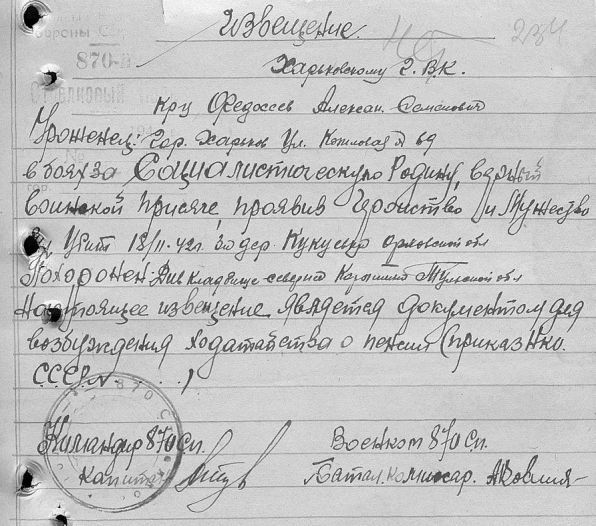 Извещение.
обороны С
870-й
Стрелковый
Харьковскому Г.В.К.
Кру Федосеев Алексан. Семенович
Уроженец: Гор. Харьков Ул. № 69
в боях за Социалистическую Родину, верный
воинской присяге, проявив Геройство и Мужество
Убит 18/II-42г. за дер. Кукуевка Орловской обл
Похоронен: Див кладбище севернее Тульской обл
Настоящее извещение является документом для
возбуждения ходатайства о пенсии (приказ Нко.
СССР. N . . . )
870 С
Командир 870 сп. Военком 870 сп.
Капитан Батал. комиссар.